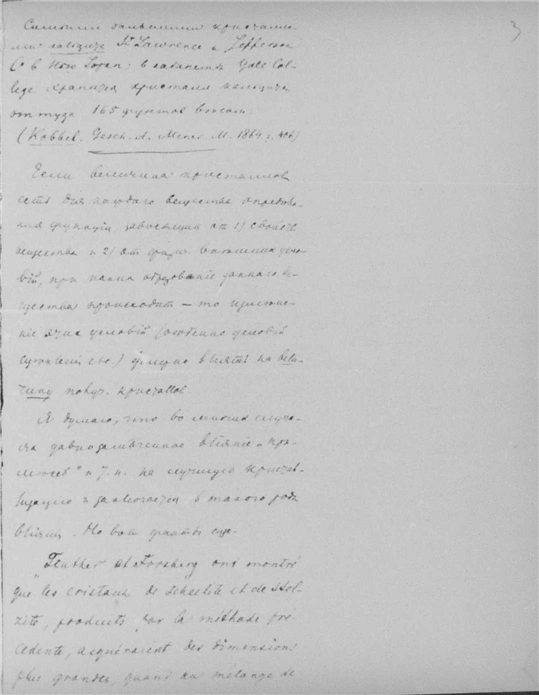 3
кальцита St Lawrence и Jefferson
C° в Нью Іорк: в кабинетѣ Yale Col-
lege хранится кристалл кальцита
оттуда 165 фунтов вѣсом.
(Kobbel. Gesch. d. Miner. M. 1864. s. 406)
Если величина кристаллов
есть для каждаго вещества опредѣлен-
ная функція, зависящая от 1) свойств
вещества и 2) от физ. внѣшних усло-
вій, при каких образованіе даннаго ве-
щества происходит — то измѣне-
ніе этих условій (особенно условій
) должно вліять на вели-
чину получ. кристаллов
Я думаю, что во многих случа-
ях давно замѣченное вліяніе „при-
мѣсей" и т. п. на лучшую кристал-
лизацію и заключается в такого рода
вліяніи. Но вот факты еще.
"Teuther et Forsberg ont montré
que les cristaux de scheelite et de stol-
zite, produits par la méthode pré-
cédente, acquéraient des dimensions
plus grandes, quand au mélange de